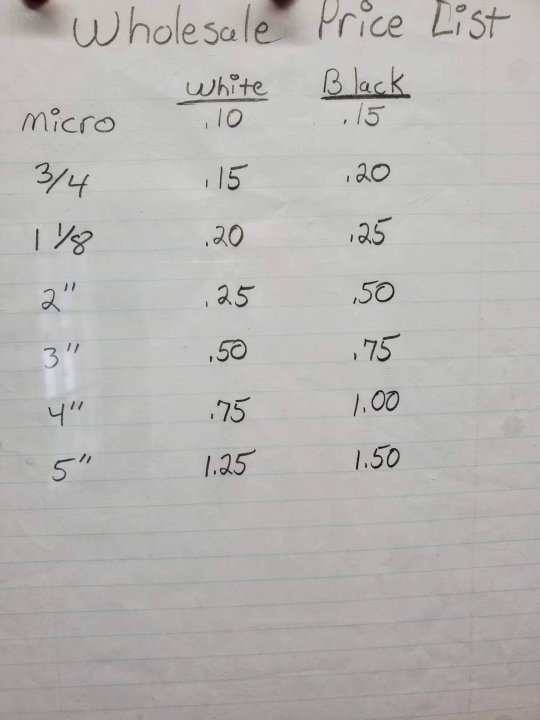 Wholesale Price List
White Black
Micro .10 .15
3/4 .15 .20
1 1/8 .20 .25
2" .25 .50
3" .50 .75
4" .75 1.00
5" 1.25 1.50